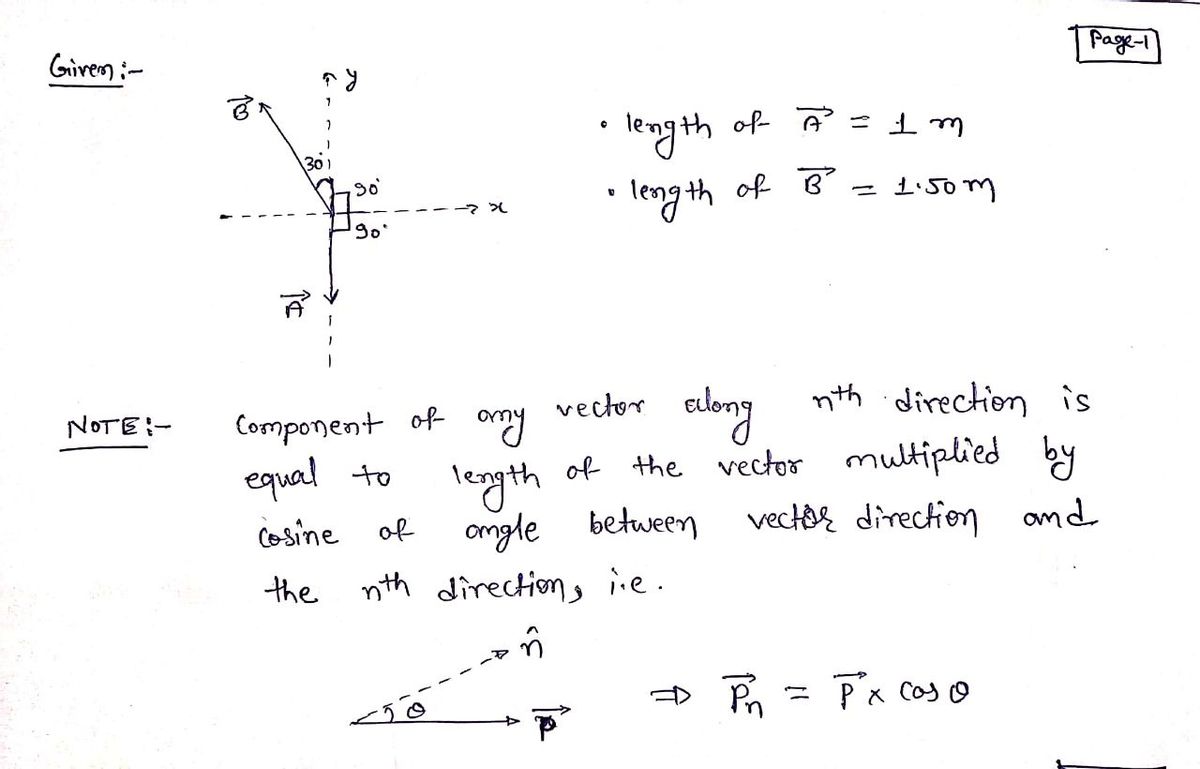 Page-1
Given :-
y
B
30°
90°
x
90°
A
• length of A = 1 m
• length of B = 1.50 m
NOTE :- Component of any vector along nth direction is
equal to length of the vector multiplied by
cosine of angle between vector direction and
the nth direction, i.e.
n̂
θ
P
⇒ Pn = P x cos θ